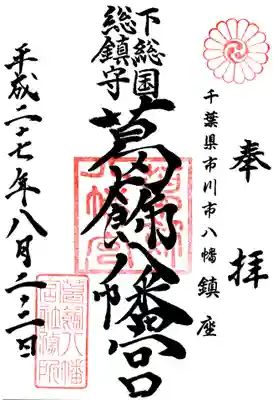 奉拝
千葉県市川市八幡鎮座
下総国
総鎮守
葛飾八幡宮
平成二十七年八月二十二日
葛飾八幡宮社務所